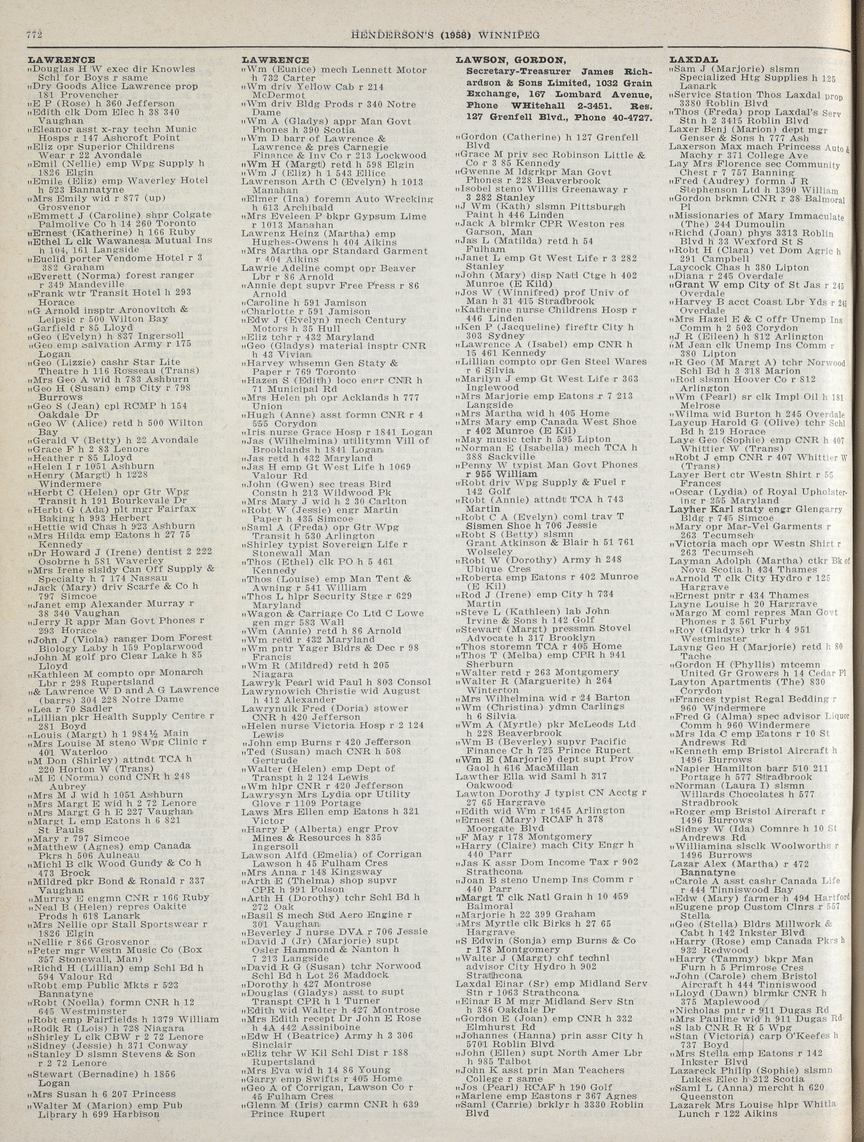 772
HENDERSON'S (1958) WINNIPEG
LAWRENCE
"Douglas H W exec dir Knowles
Schl for Boys r same
"Dry Goods Alice Lawrence prop
181 Provencher
"E P (Rose) h 360 Jefferson
"Edith clk Dom Elec h 38 340
Vaughan
"Eleanor asst x-ray techn Munic
Hosps r 147 Ashcroft Point
"Eliz opr Superior Childrens
Wear r 22 Avondale
"Emil (Nellie) emp Wpg Supply h
1826 Elgin
"Emile (Eliz) emp Waverley Hotel
h 523 Bannatyne
"Mrs Emily wid r 877 (up)
Grosvenor
"Emmett J (Caroline) shpr Colgate
Palmolive Co h 14 260 Toronto
"Ernest (Katherine) h 166 Ruby
"Ethel L clk Wawanesa Mutual Ins
h 104, 161 Langside
"Euclid porter Vendome Hotel r 3
382 Graham
"Everett (Norma) forest ranger
r 349 Mandeville
"Frank wtr Transit Hotel h 293
Horace
"G Arnold insptr Aronovitch &
Leipsic r 500 Wilton Bay
"Garfield r 85 Lloyd
"Geo (Evelyn) h 837 Ingersoll
"Geo emp Salvation Army r 175
Logan
"Geo (Lizzie) cashr Star Lite
Theatre h 116 Rosseau (Trans)
"Mrs Geo A wid h 783 Ashburn
"Geo H (Susan) emp City r 798
Burrows
"Geo S (Jean) cpl RCMP h 154
Oakdale Dr
"Geo W (Alice) retd h 500 Wilton
Bay
"Gerald V (Betty) h 22 Avondale
"Grace F h 2 83 Lenore
"Heather r 85 Lloyd
"Helen I r 1051 Ashburn
"Henry (Margt) h 1228
Windermere
"Herbt C (Helen) opr Gtr Wpg
Transit h 191 Bourkevale Dr
"Herbt G (Ada) plt mgr Fairfax
Baking h 993 Herbert
"Hettie wid Chas h 923 Ashburn
"Mrs Hilda emp Eatons h 27 75
Kennedy
"Dr Howard J (Irene) dentist 2 222
Osborne h 581 Waverley
"Mrs Irene slsldy Can Off Supply &
Specialty h 7 174 Nassau
"Jack (Mary) driv Scarfe & Co h
797 Simcoe
"Janet emp Alexander Murray r
38 340 Vaughan
"Jerry R appr Man Govt Phones r
293 Horace
"John J (Viola) ranger Dom Forest
Biology Laby h 159 Poplarwood
"John M golf pro Clear Lake h 85
Lloyd
"Kathleen M compto opr Monarch
Lbr r 298 Rupertsland
"& Lawrence W D and A G Lawrence
(barrs) 304 228 Notre Dame
"Lea r 70 Sadler
"Lillian pkr Health Supply Centre r
281 Boyd
"Louis (Margt) h 1 984½ Main
"Mrs Louise M steno Wpg Clinic r
401 Waterloo
"M Don (Shirley) attndt TCA h
220 Horton W (Trans)
"M E (Norma) cond CNR h 248
Aubrey
"Mrs M J wid h 1051 Ashburn
"Mrs Margt E wid h 2 72 Lenore
"Mrs Margt G h E 227 Vaughan
"Margt L emp Eatons h 6 821
St Pauls
"Mary r 797 Simcoe
"Matthew (Agnes) emp Canada
Pkrs h 506 Aulneau
"Michl B clk Wood Gundy & Co h
473 Brock
"Mildred pkr Bond & Ronald r 337
Vaughan
"Murray E engmn CNR r 166 Ruby
"Neal B (Helen) repres Oakite
Prods h 618 Lanark
"Mrs Nellie opr Stall Sportswear r
1826 Elgin
"Nellie r 866 Grosvenor
"Peter mgr Westn Music Co (Box
357 Stonewall, Man)
"Richd H (Lillian) emp Schl Bd h
594 Valour Rd
"Robt emp Public Mkts r 523
Bannatyne
"Robt (Noella) formn CNR h 12
645 Westminster
"Robt emp Fairfields h 1379 William
"Rodk R (Lois) h 728 Niagara
"Shirley L clk CBW r 2 72 Lenore
"Sidney (Jessie) h 371 Conway
"Stanley D slsmn Stevens & Son
r 2 72 Lenore
"Stewart (Bernadine) h 1856
Logan
"Mrs Susan h 6 207 Princess
"Walter M (Marion) emp Pub
Library h 699 Harbison
LAWRENCE
"Wm (Eunice) mech Lennett Motor
h 732 Carter
"Wm driv Yellow Cab r 214
McDermot
"Wm driv Bldg Prods r 340 Notre
Dame
"Wm A (Gladys) appr Man Govt
Phones h 390 Scotia
"Wm D barr of Lawrence &
Lawrence & pres Carnegie
Finance & Inv Co r 213 Lockwood
"Wm H (Margt) retd h 598 Elgin
"Wm J (Eliz) h 1 543 Ellice
Lawrenson Arth C (Evelyn) h 1013
Manahan
"Elmer (Ina) foremn Auto Wrecking
h 613 Archibald
"Mrs Eveleen P bkpr Gypsum Lime
r 1013 Manahan
Lawrenz Heinz (Martha) emp
Hughes-Owens h 404 Aikins
"Mrs Martha opr Standard Garment
r 404 Aikins
Lawrie Adeline compt opr Beaver
Lbr r 86 Arnold
"Annie dept supvr Free Press r 86
Arnold
"Caroline h 591 Jamison
"Charlotte r 591 Jamison
"Edw J (Evelyn) mech Century
Motors h 35 Hull
"Eliz tchr r 432 Maryland
"Geo (Gladys) material insptr CNR
h 43 Vivian
"Harvey whsemn Gen Staty &
Paper r 769 Toronto
"Hazen S (Edith) loco engr CNR h
71 Municipal Rd
"Mrs Helen ph opr Acklands h 777
Union
"Hugh (Anne) asst formn CNR r 4
555 Corydon
"Iris nurse Grace Hosp r 1841 Logan
"Jas (Wilhelmina) utilitymn Vill of
Brooklands h 1841 Logan
"Jas retd h 432 Maryland
"Jas H emp Gt West Life h 1069
Valour Rd
"John (Gwen) sec treas Bird
Constn h 213 Wildwood Pk
"Mrs Mary J wid h 2 30 Carlton
"Robt W (Jessie) engr Martin
Paper h 435 Simcoe
"Saml A (Freda) opr Gtr Wpg
Transit h 530 Arlington
"Shirley typist Sovereign Life r
Stonewall Man
"Thos (Ethel) clk PO h 5 461
Kennedy
"Thos (Louise) emp Man Tent &
Awning r 541 William
"Thos L hlpr Security Stge r 629
Maryland
"Wagon & Carriage Co Ltd C Lowe
gen mgr 583 Wall
"Wm (Annie) retd h 86 Arnold
"Wm retd r 432 Maryland
"Wm pntr Yager Bldrs & Dec r 98
Francis
"Wm R (Mildred) retd h 205
Niagara
Lawryk Pearl wid Paul h 803 Consol
Lawrynowich Christie wid August
h 412 Alexander
Lawrynuik Fred (Doria) stower
CNR h 420 Jefferson
"Helen nurse Victoria Hosp r 2 124
Lewis
"John emp Burns r 420 Jefferson
"Ted (Susan) mach CNR h 508
Gertrude
"Walter (Helen) emp Dept of
Transpt h 2 124 Lewis
"Wm hlpr CNR r 420 Jefferson
Lawrysyn Mrs Lydia opr Utility
Glove r 1109 Portage
Laws Mrs Ellen emp Eatons h 321
Victor
"Harry P (Alberta) engr Prov
Mines & Resources h 835
Ingersoll
Lawson Alfd (Emelia) of Corrigan
Lawson h 45 Fulham Cres
"Mrs Anna r 148 Kingsway
"Arth E (Thelma) shop supvr
CPR h 991 Polson
"Arth H (Dorothy) tchr Schl Bd h
272 Oak
"Basil S mech Std Aero Engine r
301 Vaughan
"Beverley J nurse DVA r 706 Jessie
"David J (Jr) (Marjorie) supt
Osler Hammond & Nanton h
7 213 Langside
"David R G (Susan) tchr Norwood
Schl Bd h Lot 26 Maddock
"Dorothy h 427 Montrose
"Douglas (Gladys) asst to supt
Transpt CPR h 1 Turner
"Edith wid Walter h 427 Montrose
"Mrs Edith recept Dr John E Rose
h 4A 442 Assiniboine
"Edw H (Beatrice) Army h 3 306
Sinclair
"Eliz tchr W Kil Schl Dist r 188
Rupertsland
"Mrs Eva wid h 14 86 Young
"Garry emp Swifts r 405 Home
"Geo A of Corrigan, Lawson Co r
45 Fulham Cres
"Glenn M (Iris) carmn CNR h 639
Prince Rupert
LAWSON, GORDON,
Secretary-Treasurer James Rich-
ardson & Sons Limited, 1032 Grain
Exchange, 167 Lombard Avenue,
Phone WHitehall 2-3451. Res.
127 Grenfell Blvd., Phone 40-4727.
"Gordon (Catherine) h 127 Grenfell
Blvd
"Grace M priv sec Robinson Little &
Co r 3 85 Kennedy
"Gwenne M ldgrkpr Man Govt
Phones r 228 Beaverbrook
"Isobel steno Willis Greenaway r
3 282 Stanley
"J Wm (Kath) slsmn Pittsburgh
Paint h 446 Linden
"Jack A blrmkr CPR Weston res
Garson, Man
"Jas L (Matilda) retd h 54
Fulham
"Janet L emp Gt West Life r 3 282
Stanley
"John (Mary) disp Natl Ctge h 402
Munroe (E Kild)
"Jos W (Winnifred) prof Univ of
Man h 31 415 Stradbrook
"Katherine nurse Childrens Hosp r
446 Linden
"Ken P (Jacqueline) fireftr City h
303 Sydney
"Lawrence A (Isabel) emp CNR h
15 461 Kennedy
"Lillian compto opr Gen Steel Wares
r 6 Silvia
"Marilyn J emp Gt West Life r 363
Inglewood
"Mrs Marjorie emp Eatons r 7 213
Langside
"Mrs Martha wid h 405 Home
"Mrs Mary emp Canada West Shoe
r 402 Munroe (E Kil)
"May music tchr h 595 Lipton
"Norman E (Isabella) mech TCA h
388 Sackville
"Penny W typist Man Govt Phones
r 955 William
"Robt driv Wpg Supply & Fuel r
142 Golf
"Robt (Annie) attndt TCA h 743
Martin
"Robt C A (Evelyn) coml trav T
Sismen Shoe h 706 Jessie
"Robt S (Betty) slsmn
Grant Atkinson & Blair h 51 761
Wolseley
"Robt W (Dorothy) Army h 248
Ubique Cres
"Roberta emp Eatons r 402 Munroe
(E Kil)
"Rod J (Irene) emp City h 734
Martin
"Steve L (Kathleen) lab John
Irvine & Sons h 142 Golf
"Stewart (Margt) pressmn Stovel
Advocate h 317 Brooklyn
"Thos storemn TCA r 405 Home
"Thos T (Melba) emp CPR h 941
Sherburn
"Walter retd r 263 Montgomery
"Walter R (Marguerite) h 264
Winterton
"Mrs Wilhelmina wid r 24 Barton
"Wm (Christina) ydmn Carlings
h 6 Silvia
"Wm A (Myrtle) pkr McLeods Ltd
h 228 Beaverbrook
"Wm B (Beverly) supvr Pacific
Finance Cr h 725 Prince Rupert
"Wm E (Marjorie) dept supt Prov
Gaol h 616 MacMillan
Lawther Ella wid Saml h 317
Oakwood
Lawton Dorothy J typist CN Acctg r
27 65 Hargrave
"Edith wid Wm r 1645 Arlington
"Ernest (Mary) RCAF h 378
Moorgate Blvd
"F May r 178 Montgomery
"Harry (Claire) mach City Engr h
440 Parr
"Jas K assr Dom Income Tax r 902
Strathcona
"Joan B steno Unemp Ins Comm r
440 Parr
"Margt T clk Natl Grain h 10 459
Balmoral
"Marjorie h 22 399 Graham
"Mrs Myrtle clk Birks h 27 65
Hargrave
"S Edwin (Sonja) emp Burns & Co
r 178 Montgomery
"Walter J (Margt) chf technl
advisor City Hydro h 902
Strathcona
Laxdal Einar (Sr) emp Midland Serv
Stn r 1063 Strathcona
"Einar B M mgr Midland Serv Stn
h 386 Oakdale Dr
"Gordon E (Joan) emp CNR h 332
Elmhurst Rd
"Johannes (Hanna) prin assr City h
5701 Roblin Blvd
"John (Ellen) supt North Amer Lbr
h 985 Talbot
"John K asst prin Man Teachers
College r same
"Jos (Pearl) RCAF h 190 Golf
"Marlene emp Eastons r 367 Agnes
"Saml (Carrie) brklyr h 3330 Roblin
Blvd
LAXDAL
"Sam J (Marjorie) slsmn
Specialized Htg Supplies h 125
Lanark
"Service Station Thos Laxdal prop
3380 Roblin Blvd
"Thos (Freda) prop Laxdal's Serv
Stn h 2 3415 Roblin Blvd
Laxer Benj (Marion) dept mgr
Genser & Sons h 777 Ash
Laxerson Max mach Princess Auto &
Machy r 371 College Ave
Lay Mrs Florence sec Community
Chest r 7 757 Banning
"Fred (Audrey) formn J R
Stephenson Ltd h 1390 William
"Gordon brkmn CNR r 38 Balmoral
Pl
"Missionaries of Mary Immaculate
(The) 244 Dumoulin
"Richd (Joan) phys 3313 Roblin
Blvd h 33 Wexford St S
"Robt H (Clara) vet Dom Agric h
291 Campbell
Laycock Chas h 380 Lipton
"Diana r 245 Overdale
"Grant W emp City of St Jas r 245
Overdale
"Harvey B acct Coast Lbr Yds r 245
Overdale
"Mrs Hazel E & C offr Unemp Ins
Comm h 2 503 Corydon
"J R (Eileen) h 812 Arlington
"M Jean clk Unemp Ins Comm r
380 Lipton
"R Geo (M Margt A) tchr Norwood
Schl Bd h 3 318 Marion
"Rod slsmn Hoover Co r 812
Arlington
"Wm (Pearl) sr clk Impl Oil h 181
Melrose
"Wilma wid Burton h 245 Overdale
Laycup Harold G (Olive) tchr Schl
Bd h 219 Horace
Laye Geo (Sophie) emp CNR h 407
Whittier W (Trans)
"Robt J emp CNR r 407 Whittier W
(Trans)
Layer Bert ctr Westn Shirt r 55
Frances
"Oscar (Lydia) of Royal Upholster-
ing r 255 Maryland
Layher Karl staty engr Glengarry
Bldg r 745 Simcoe
"Mary opr Mar-Vel Garments r
263 Tecumseh
"Victoria mach opr Westn Shirt r
263 Tecumseh
Layman Adolph (Martha) ctkr Bk of
Nova Scotia h 434 Thames
"Arnold T clk City Hydro r 125
Hargrave
"Ernest pntr r 434 Thames
Layne Louise h 20 Hargrave
"Margo M coml repres Man Govt
Phones r 3 561 Furby
"Roy (Gladys) trkr h 4 951
Westminster
Layng Geo H (Marjorie) retd h 80
Tache
"Gordon H (Phyllis) mtcemn
United Gr Growers h 14 Cedar Pl
Layton Apartments (The) 830
Corydon
"Frances typist Regal Bedding r
960 Windermere
"Fred G (Alma) spec advisor Liquor
Comm h 960 Windermere
"Mrs Ida C emp Eatons r 10 St
Andrews Rd
"Kenneth emp Bristol Aircraft h
1496 Burrows
"Napier Hamilton barr 510 211
Portage h 577 Stradbrook
"Norman (Laura I) slsmn
Willards Chocolates h 577
Stradbrook
"Roger emp Bristol Aircraft r
1496 Burrows
"Sidney W (Ida) Comnre h 10 St
Andrews Rd
"Williamina slsclk Woolworths r
1496 Burrows
Lazar Alex (Martha) r 472
Bannatyne
"Carole A asst cashr Canada Life
r 444 Tinniswood Bay
"Edw (Mary) farmer h 494 Hartford
"Eugene prop Custom Clnrs r 557
Stella
"Geo (Stella) Bldrs Millwork &
Cabt h 142 Inkster Blvd
"Harry (Rose) emp Canada Pkrs h
932 Redwood
"Harry (Tammy) bkpr Man
Furn h 5 Primrose Cres
"John (Carole) chem Bristol
Aircraft h 444 Tinniswood
"Lloyd (Dawn) blrmkr CNR h
375 Maplewood
"Nicholas pntr r 911 Dugas Rd
"Mrs Pauline wid h 911 Dugas Rd
"S lab CNR R R 5 Wpg
"Stan (Victoria) carp O'Keefes h
737 Boyd
"Mrs Stella emp Eatons r 142
Inkster Blvd
Lazareck Philip (Sophie) slsmn
Lukes Elec h 212 Scotia
"Saml L (Anna) mercht h 620
Queenston
Lazarek Mrs Louise hlpr Whitla
Lunch r 122 Aikins